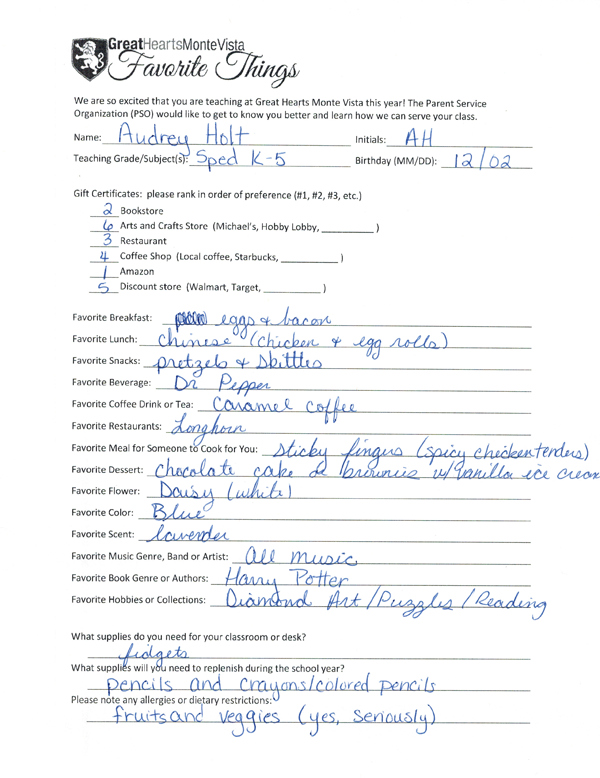 GreatHeartsMonteVista
Favorite Things
We are so excited that you are teaching at Great Hearts Monte Vista this year! The Parent Service
Organization (PSO) would like to get to know you better and learn how we can serve your class.
Name: Audrey Holt Initials: AH
Teaching Grade/Subject(s): Sped K-5 Birthday (MM/DD): 12/02
Gift Certificates: please rank in order of preference (#1, #2, #3, etc.)
2 Bookstore
6 Arts and Crafts Store (Michael's, Hobby Lobby, __________ )
3 Restaurant
4 Coffee Shop (Local coffee, Starbucks, __________ )
1 Amazon
5 Discount store (Walmart, Target, __________ )
Favorite Breakfast: eggs & bacon
Favorite Lunch: Chinese (chicken & egg rolls)
Favorite Snacks: pretzels & Skittles
Favorite Beverage: Dr Pepper
Favorite Coffee Drink or Tea: Caramel coffee
Favorite Restaurants: Longhorn
Favorite Meal for Someone to Cook for You: Sticky fingers (spicy chicken tenders)
Favorite Dessert: chocolate cake & brownies w/vanilla ice cream
Favorite Flower: Daisy (white)
Favorite Color: Blue
Favorite Scent: lavender
Favorite Music Genre, Band or Artist: All music
Favorite Book Genre or Authors: Harry Potter
Favorite Hobbies or Collections: Diamond Art/Puzzles/Reading
What supplies do you need for your classroom or desk?
fidgets
What supplies will you need to replenish during the school year?
pencils and crayons/colored pencils
Please note any allergies or dietary restrictions:
fruits and veggies (yes, seriously)